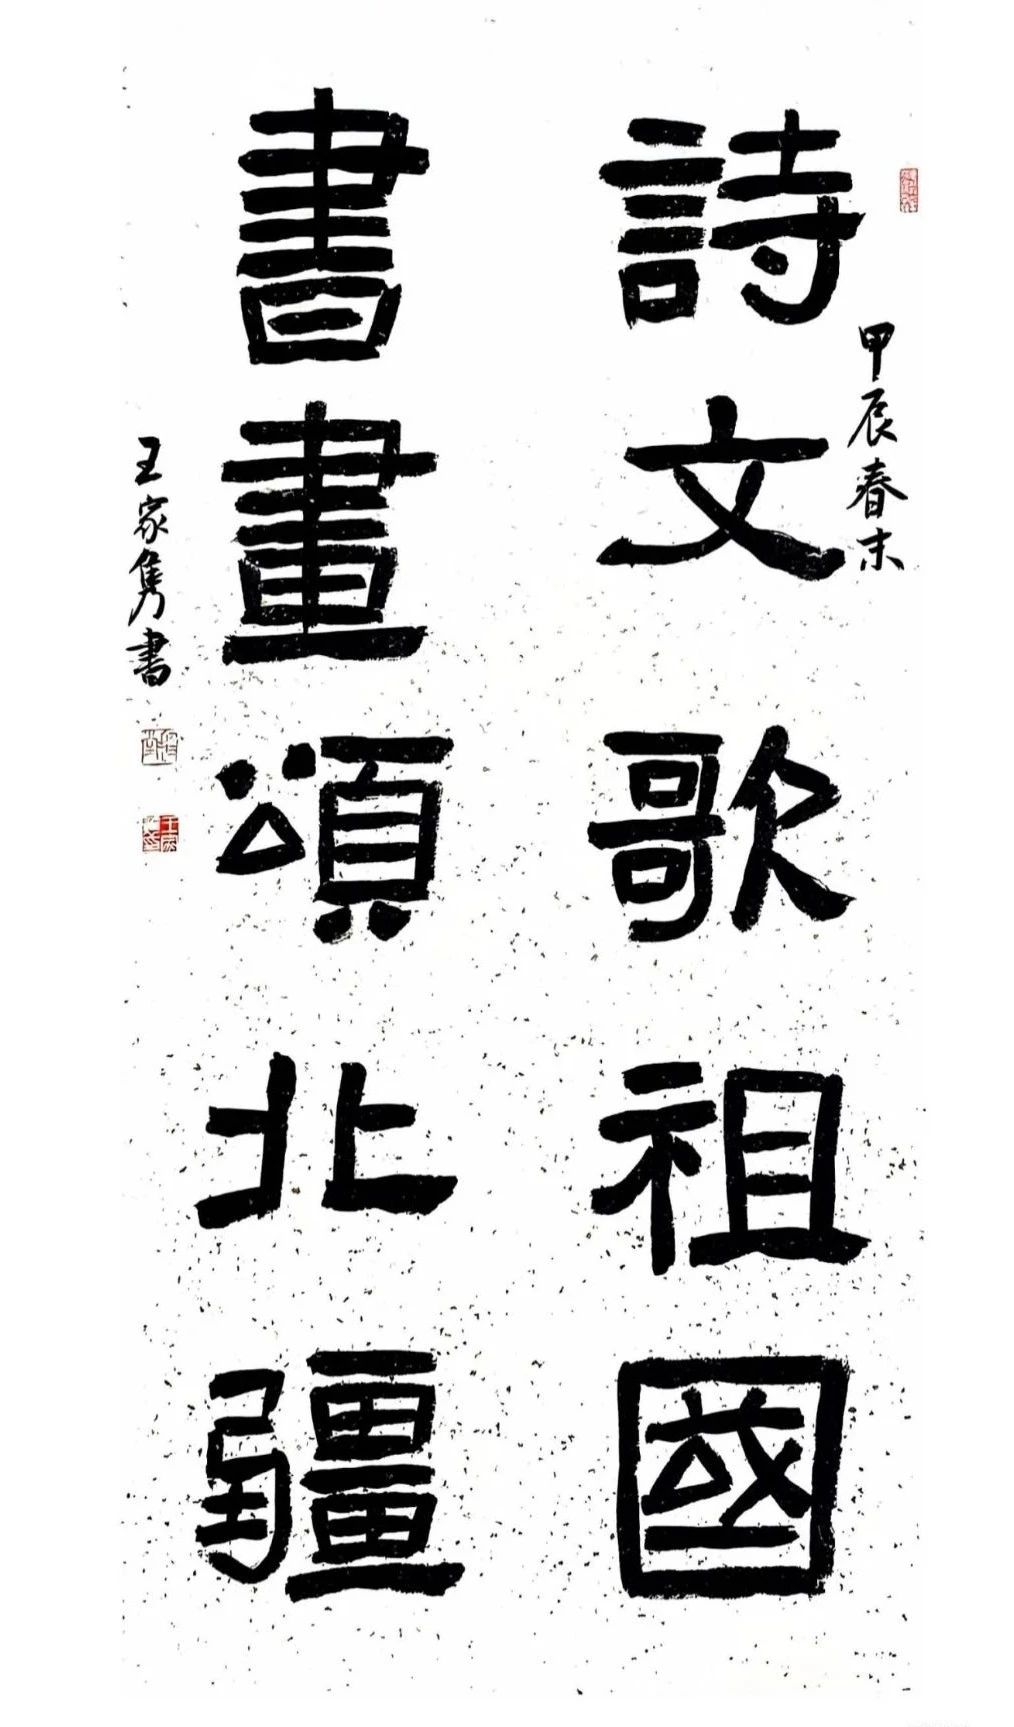 甲辰春末
詩文歌祖國
書畫頌北疆
王家隽書